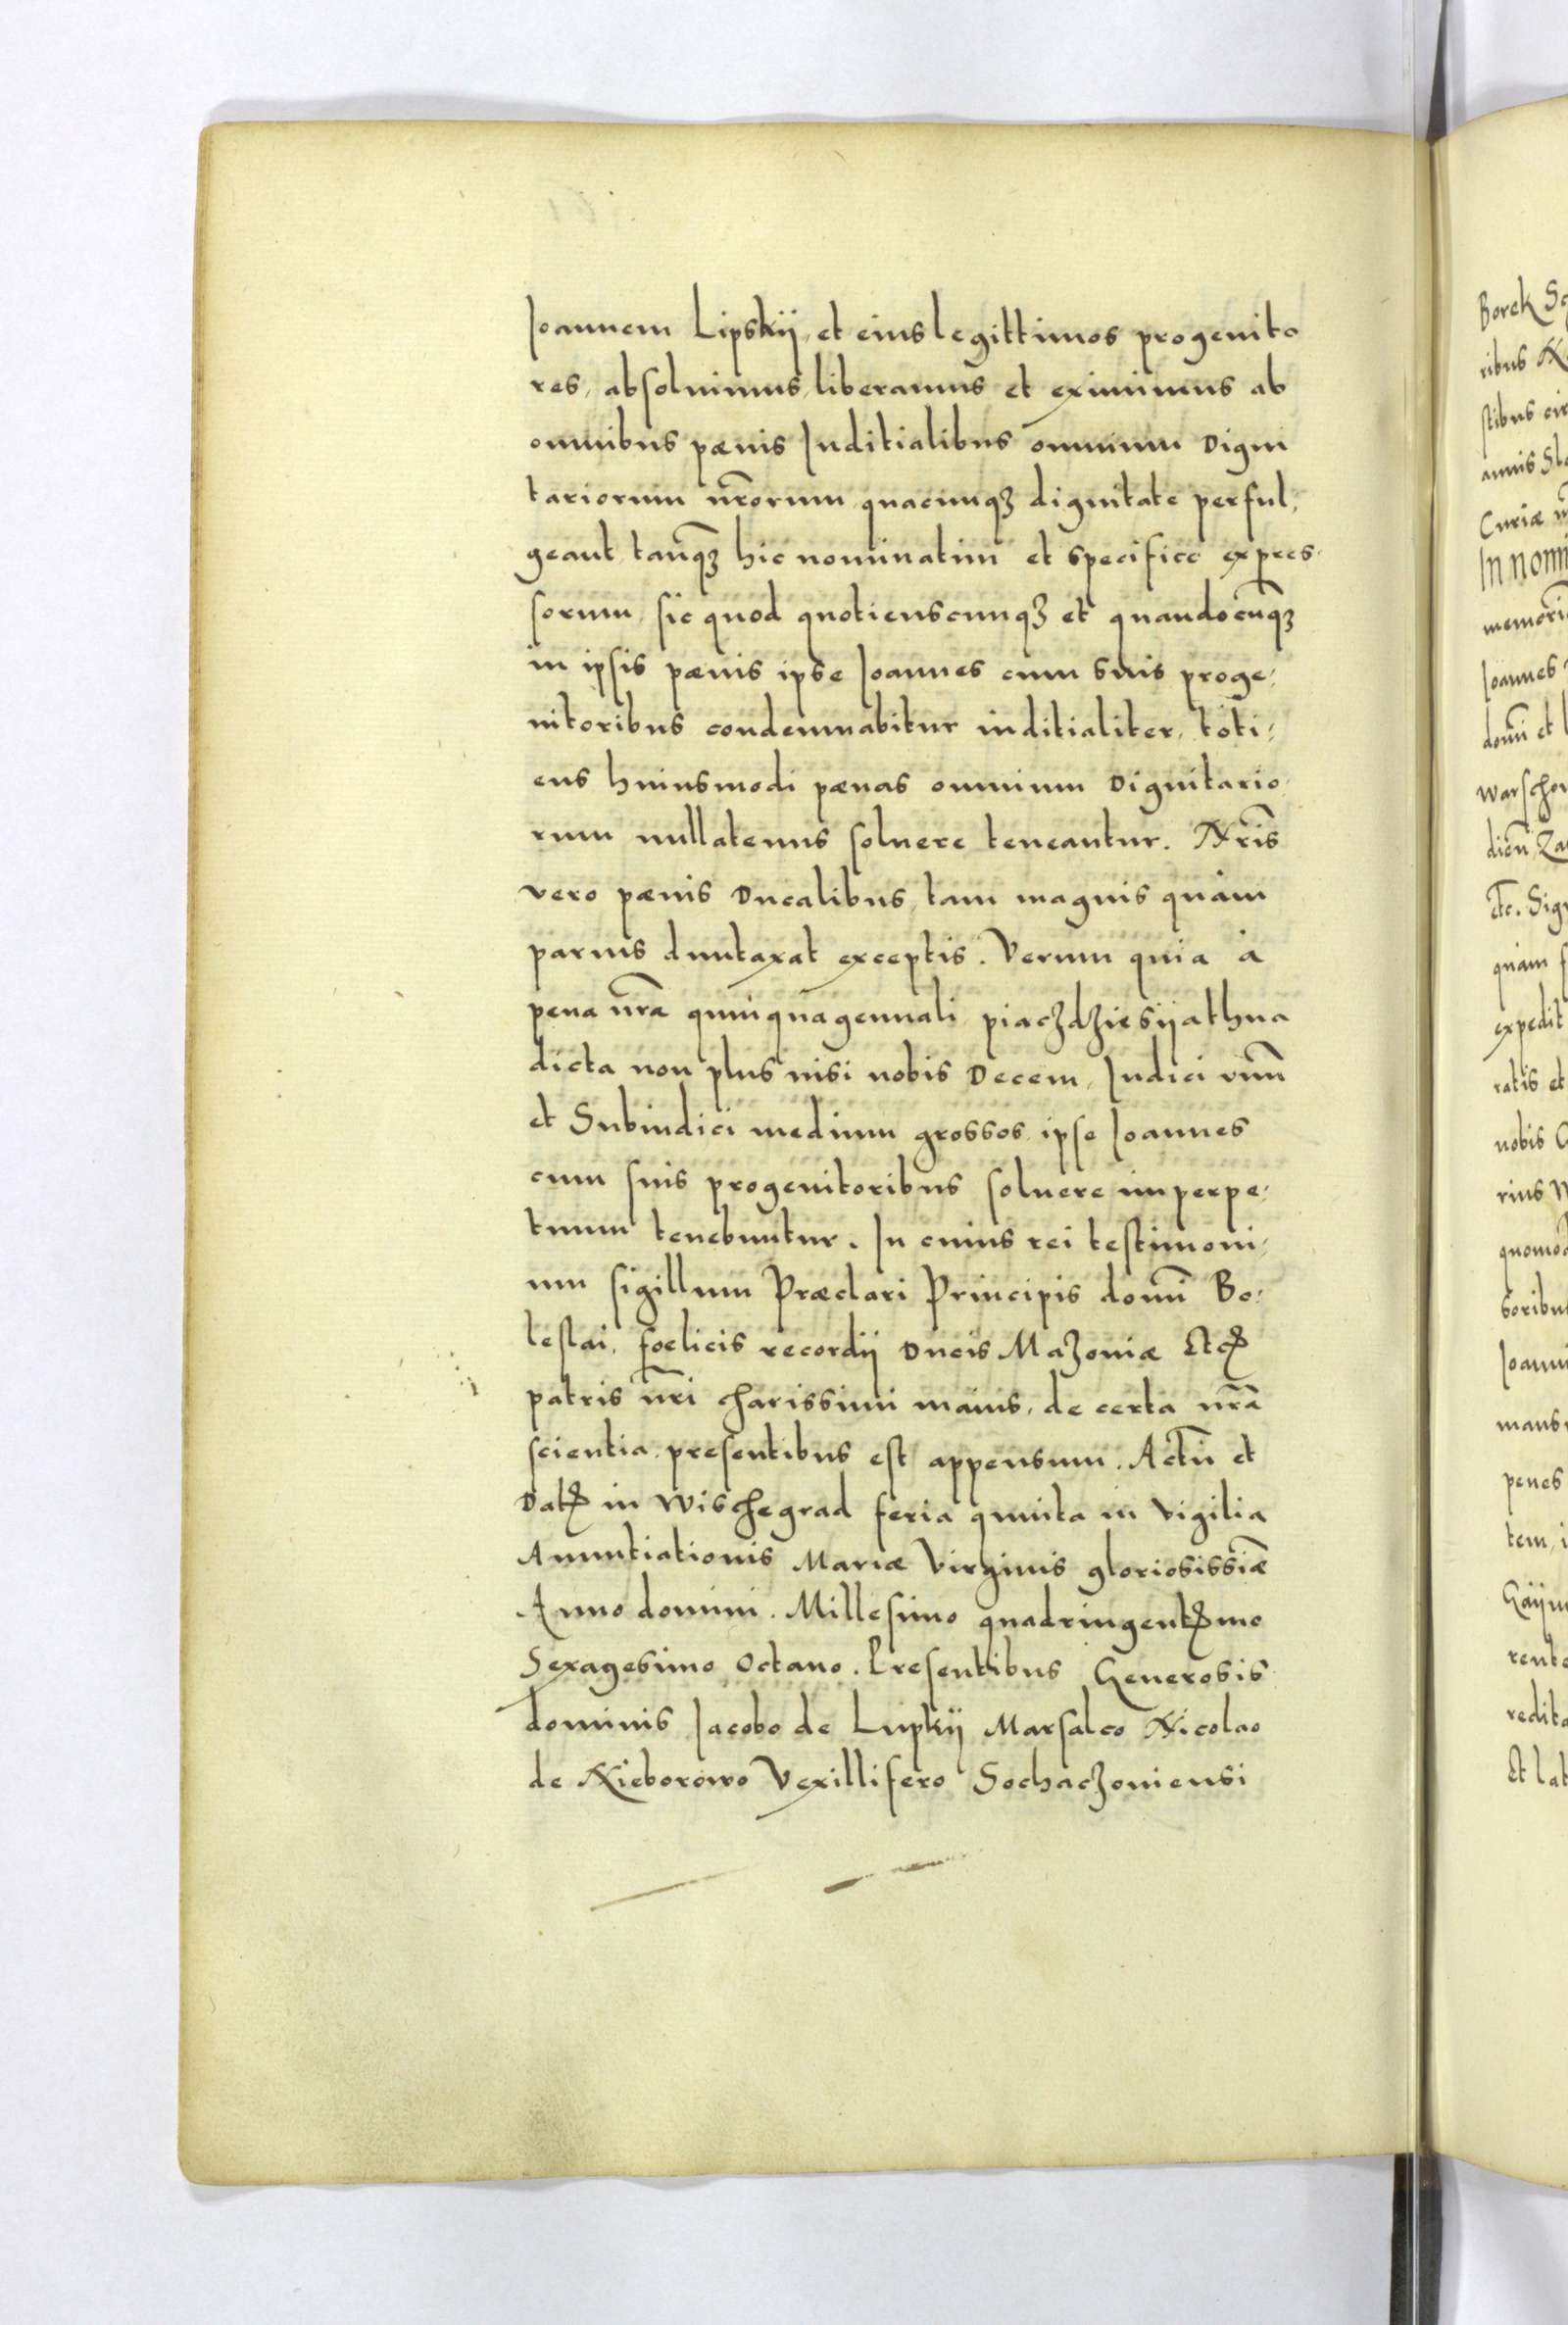 Ioannem Lipskij, et eius legittimos progenito
res, absoluimus, liberamus et eximimus ab
omnibus pænis Iuditialibus omnium Digni
tariorum nr̃orum quacunqꝫ dignitate perful,
geant, tanqꝫ hic nominatim et specifice expres-
sorum, sic quod quotienscunqꝫ et quandocũqꝫ
in ipsis pænis ipse Ioannes cum suis proge-
nitoribus condemnabitur iuditialiter, toti-
ens huiusmodi pænas omnium Dignitario-
rum nullatenus soluere teneantur. Nr̃is
vero pænis Ducalibus, tam magnis quàm
paruis duntaxat exceptis. Verum quia à
pena nr̃a quinquagennali piaczdziesijathna
dicta non plus nisi nobis Decem, Iudici vnũ
et Subiudici medium grossos, ipse Ioannes
cum suis progenitoribus soluere imperpe-
tuum tenebuntur. In cuius rei testimoni-
um sigillum Præclari Principis domĩ Bo-
leslai, foelicis recordij Ducis Mazouiæ Etcꝭ
patris nr̃i charissimi maius, de certa nr̃a
scientia presentibus est appensum. Actũ et
Datꝭ in Wischegrad feria quinta in Vigilia
Anuntiationis Mariæ Virginis gloriosissĩæ
Anno domini. Millesimo quadringentꝭmo
Sexagesimo Octauo. Presentibus Generosis
dominis Iacobo de Lupkij Marsalco Nicolao
de Nieborowo Vexillifero Sochaczouiensi
Borek
ribus
stibus
annis
Curiæ
In nomi
memori
Ioannes
domĩ et
Warschou
diẽn
etc. Sig
quàm
expedit
ratis et
nobis
rius
quomod
soribus
Ioanni
mans
penes
tem, i
Gaij
rente
redita
Et lat